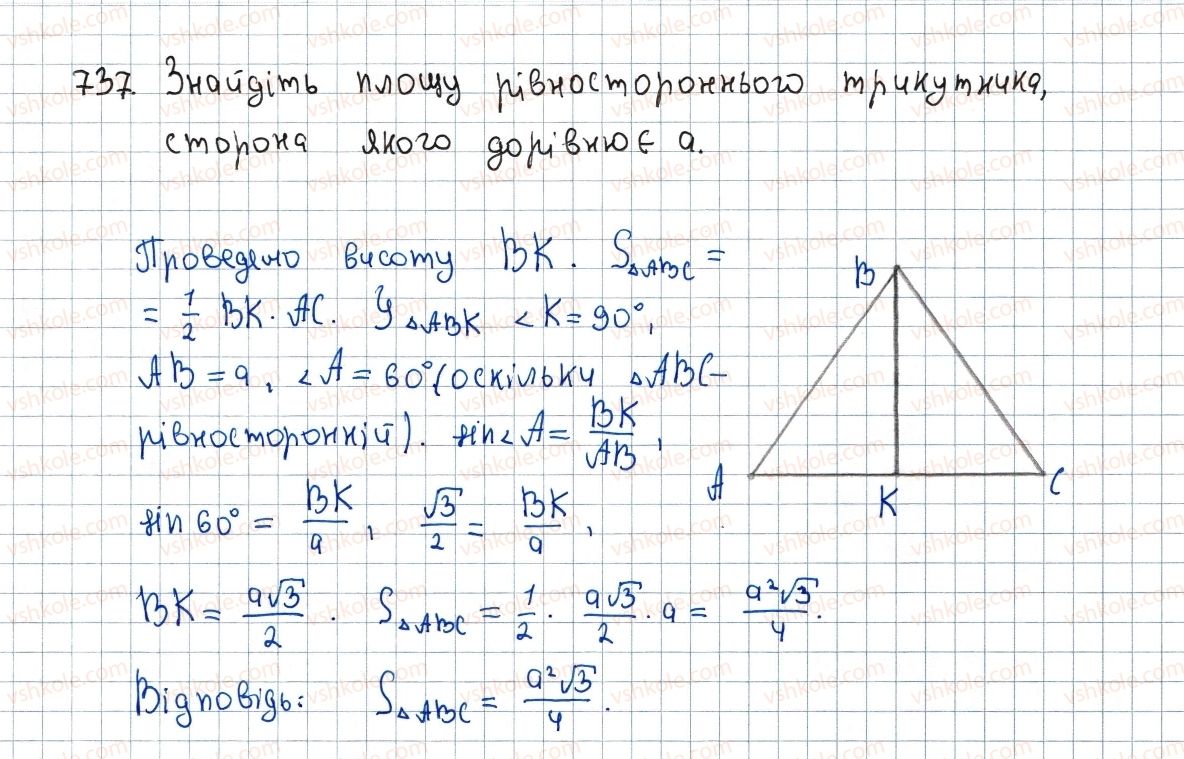 737. Знайдіть площу рівностороннього трикутника,
сторона якого дорівнює a.
Проведено висоту BK. S△ABC =
= 1/2 BK · AC. У △ABK <K = 90°,
AB = a, <A = 60° (оскільки △ABC –
рівносторонній). sin<A = BK/AB,
sin 60° = BK/a, √3/2 = BK/a,
BK = a√3/2. S△ABC = 1/2 · a√3/2 · a = a²√3/4.
Відповідь: S△ABC = a²√3/4.
B
A
K
C
vshkole.com